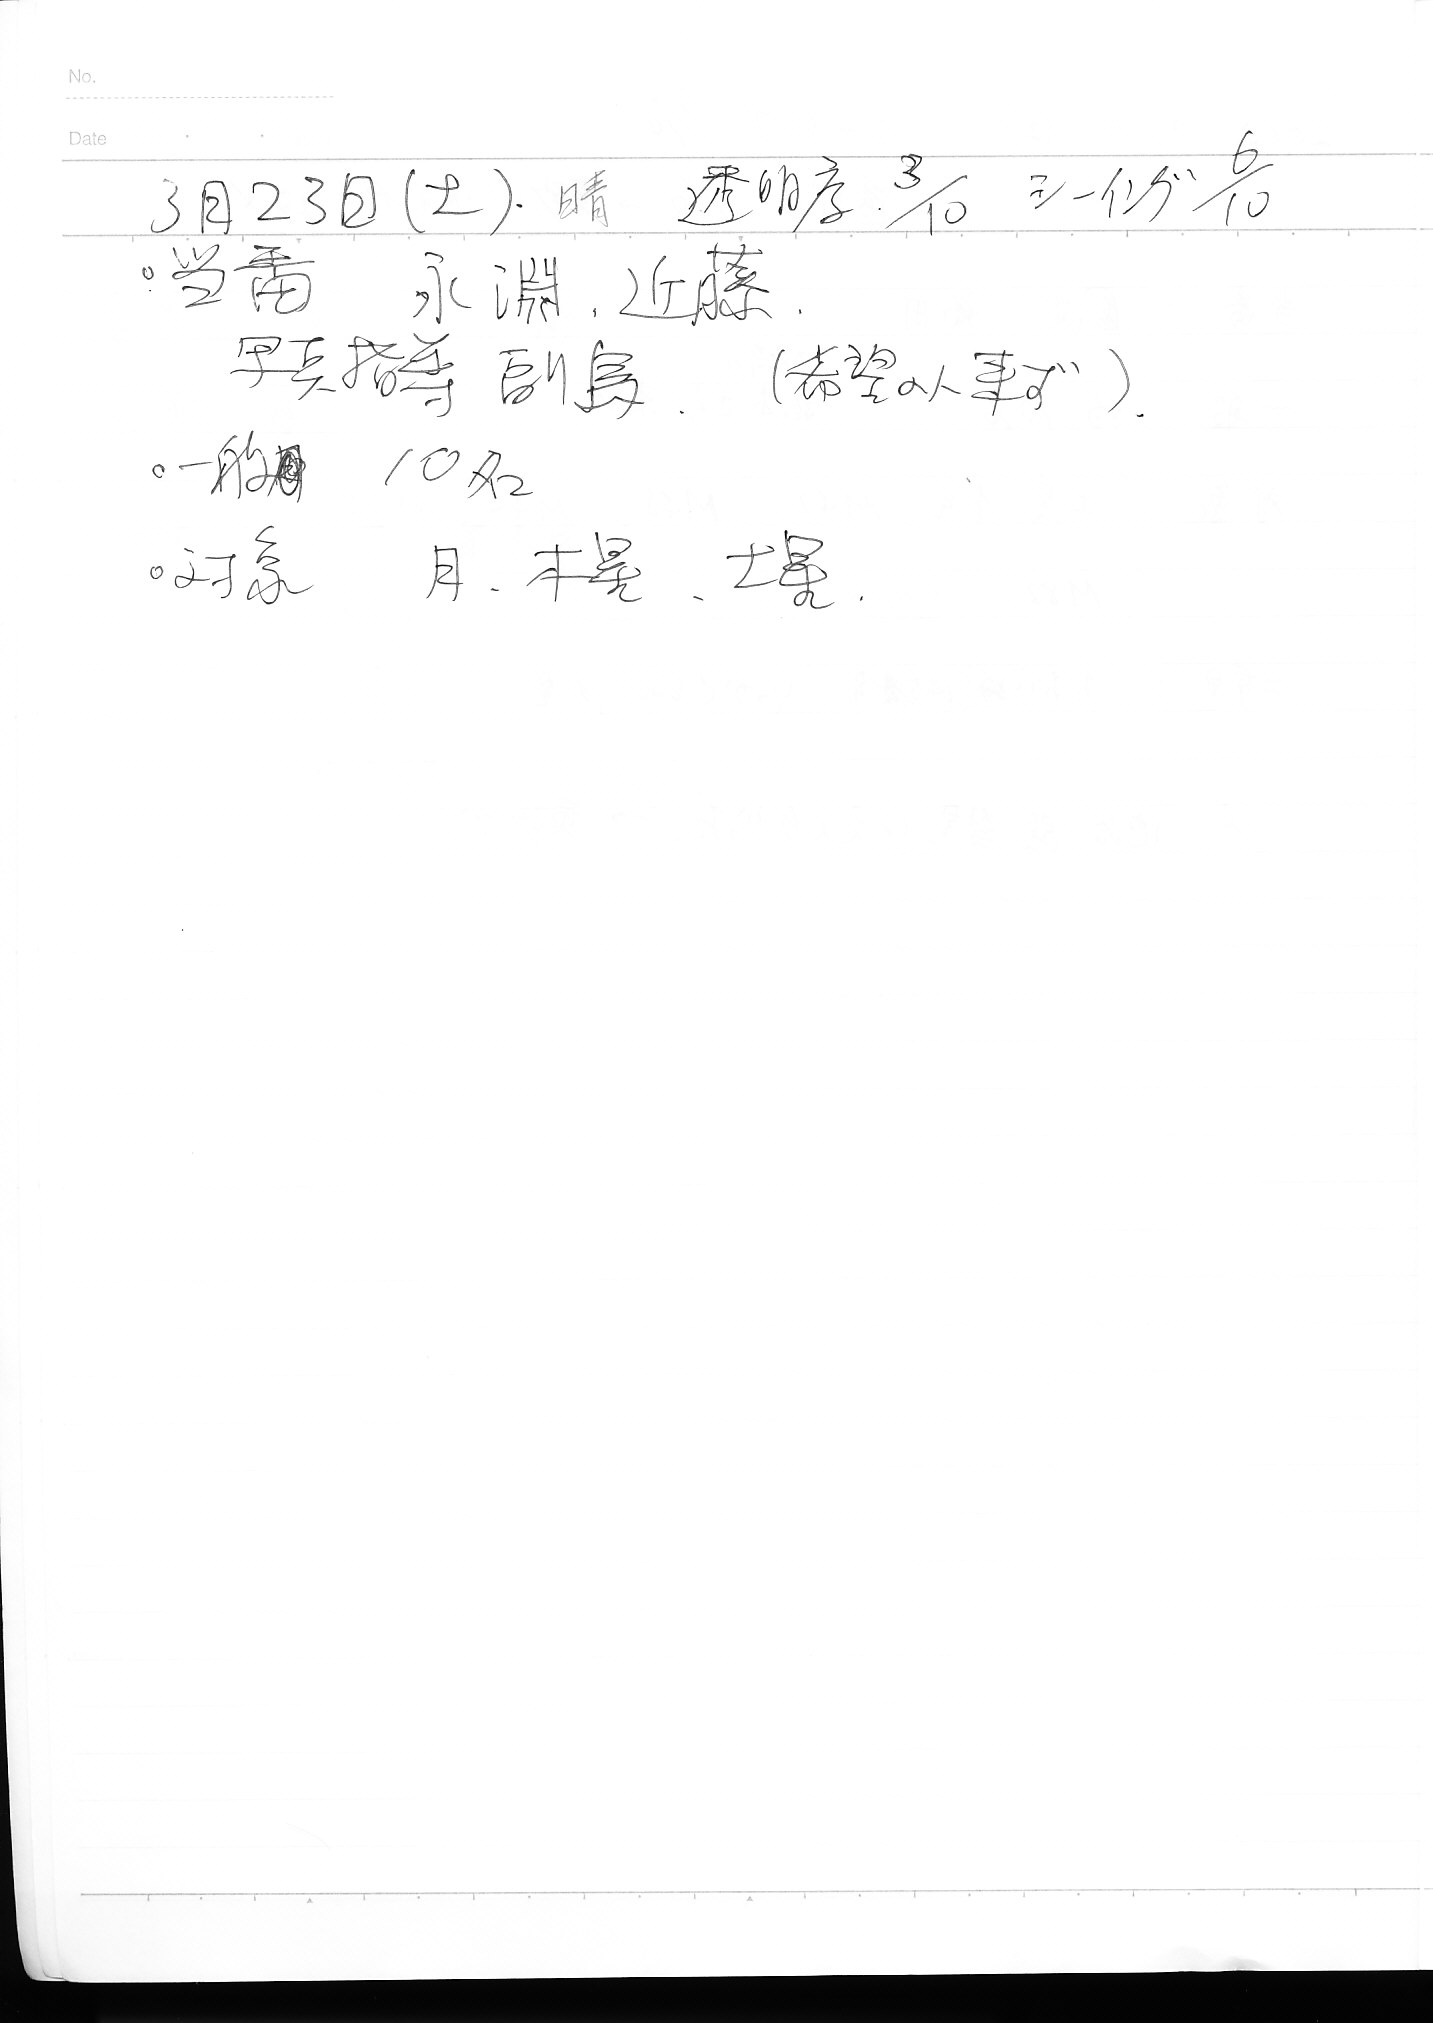 No.
Date
3月23日(土). 晴 透明度. 3/10 シーイング 6/10
・当番 永淵、近藤.
写真指導 副島. (希望の人事ず).
・一般 10名
・対象 月、木星、土星.